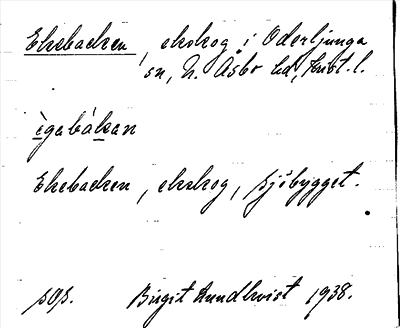 Ekebacken, ekskog i Oderljunga
sn, N. Åsbo hd, Krist. l.
ègabákan
Ekebacken, ekskog, Sjöbygget.
sos. Birgit Lundkvist 1938.